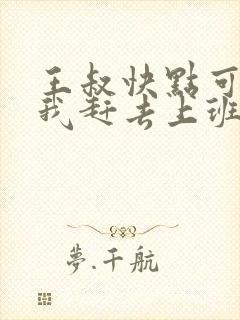 王叔快點可
我赶去上班
夢.千航